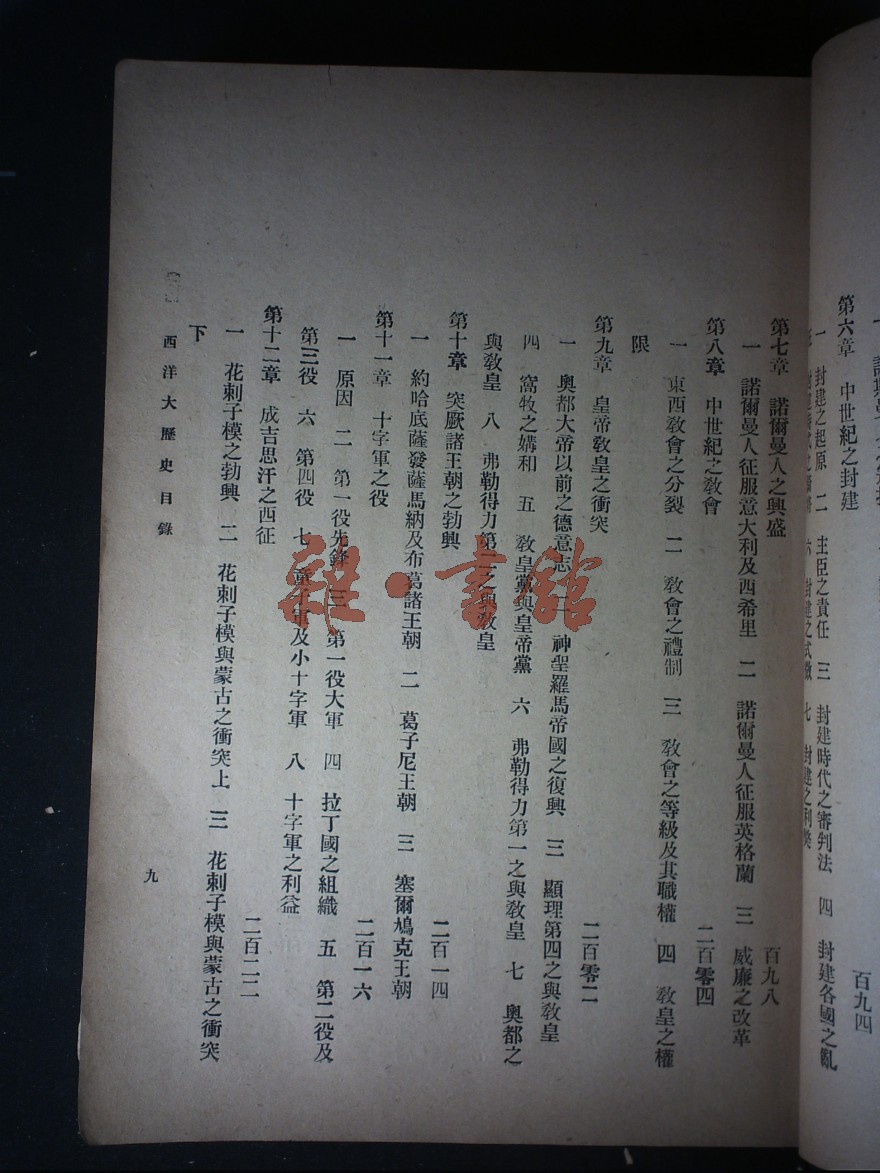 第六章 中世紀之封建 百九四
一 封建之起原 二 主臣之責任 三 封建時代之審判法 四 封建各國之亂
六 封建之式微 七 封建之利弊
第七章 諾爾曼人之興盛 百九八
一 諾爾曼人征服意大利及西希里 二 諾爾曼人征服英格蘭 三 威廉之改革
第八章 中世紀之敎會 二百零四
一 東西敎會之分裂 二 敎會之禮制 三 敎會之等級及其職權 四 敎皇之權
限
第九章 皇帝敎皇之衝突 二百零二
一 奧都大帝以前之德意志 二 神聖羅馬帝國之復興 三 顯理第四之與敎皇
四 窩牧之媾和 五 敎皇黨與皇帝黨 六 弗勒得力第一之與敎皇 七 奧都之
與敎皇 八 弗勒得力第二之與敎皇
第十章 突厥諸王朝之勃興 二百一四
一 約哈底薩發薩馬納及布葛諸王朝 二 葛子尼王朝 三 塞爾鳩克王朝
第十一章 十字軍之役 二百一六
一 原因 二 第一役先鋒 三 第一役大軍 四 拉丁國之組織 五 第二役及
第三役 六 第四役 七 童子軍及小十字軍 八 十字軍之利益
第十二章 成吉思汗之西征 二百二二
一 花剌子模之勃興 二 花剌子模與蒙古之衝突上 三 花剌子模與蒙古之衝突
下
西洋大歷史目錄 九
雜·書館